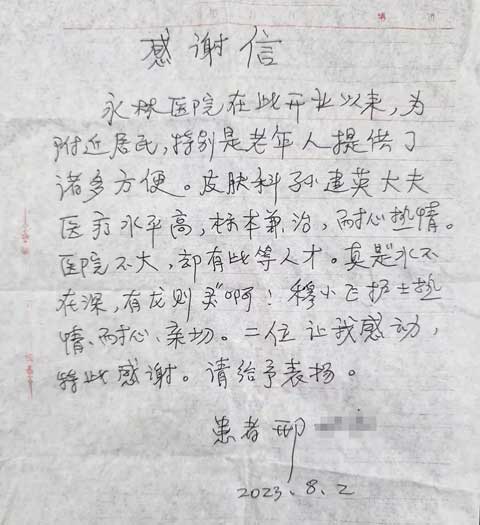 感谢信
永林医院在此开业以来，为
附近居民，特别是老年人提供了
诸多方便。皮肤科孙建英大夫
医疗水平高，标本兼治，耐心热情。
医院不大，却有此等人才。真是“水不
在深，有龙则灵”啊！穆小飞护士热
情、耐心、亲切。二位让我感动，
特此感谢。请给予表扬。
患者 邢
2023.8.2